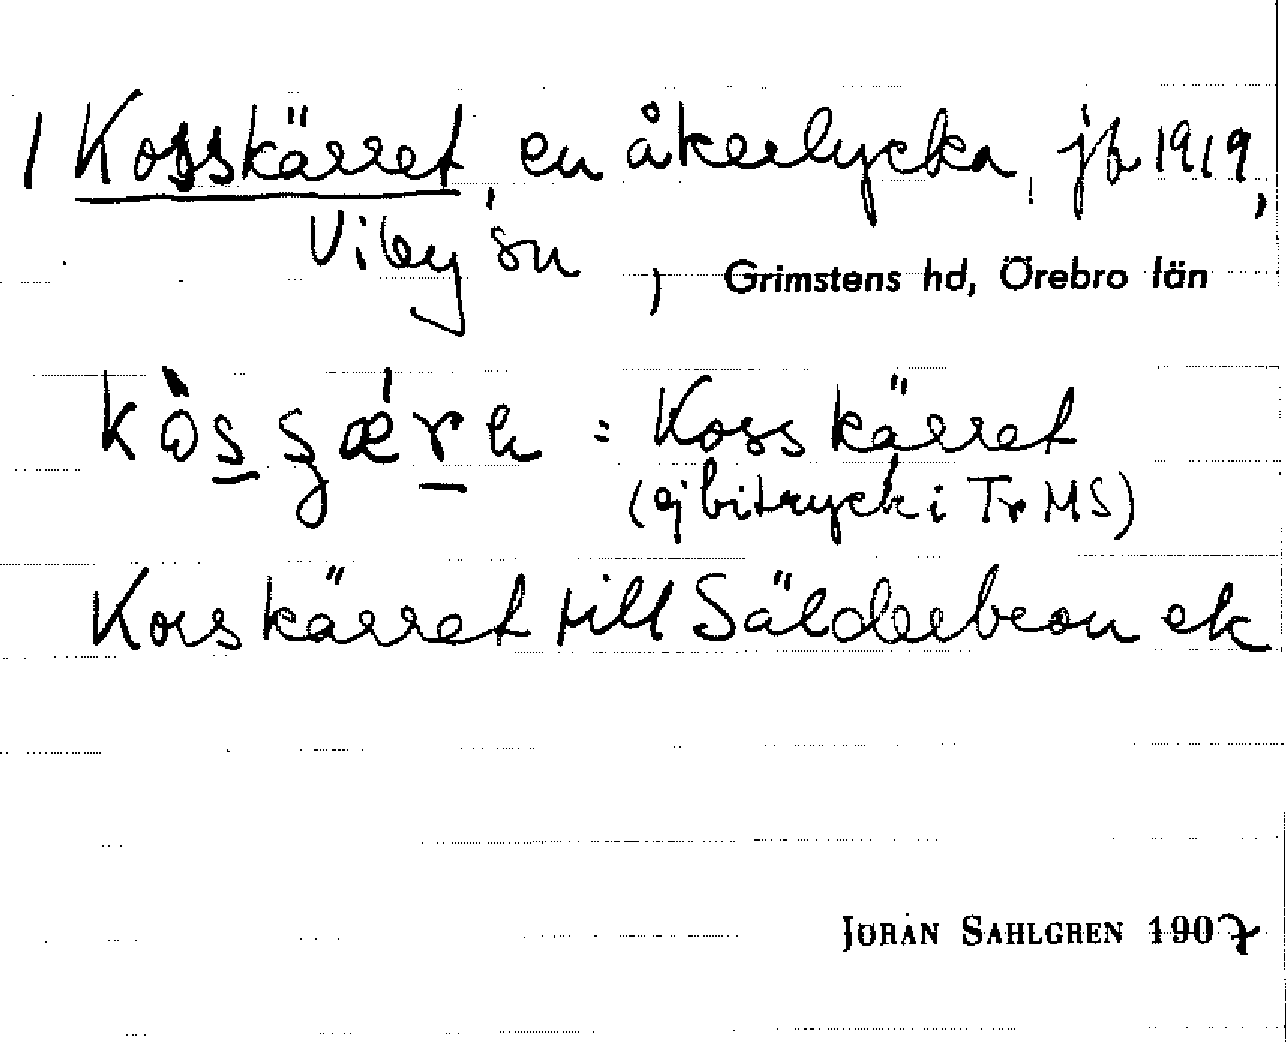 1 Kosskärret, en åkerlycka, jb 1919,
Viby sn, Grimstens hd, Örebro län
= Kosskärret
(ej bitryck i Tr MS)
Korskärret till Sälderbron ek
JÖRAN SAHLGREN 1907